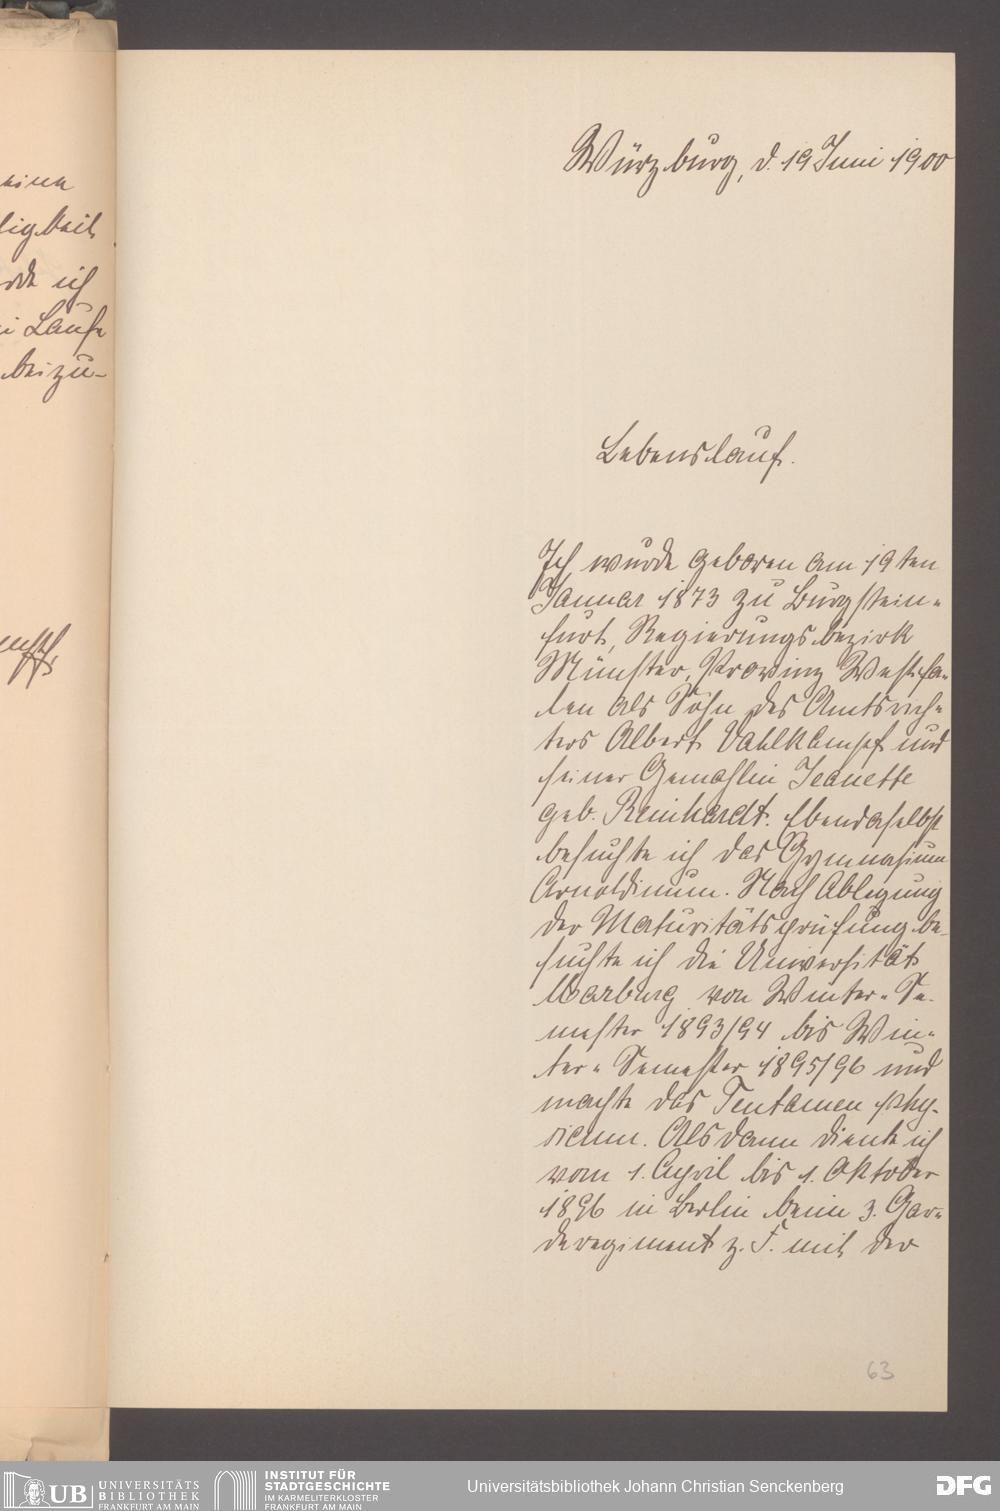 Würzburg, d. 19 Juni 1900
Lebenslauf.
Ich wurde geboren am 19ten
Januar 1873 zu Burgstein-
furt, Regierungsbezirk
Münster, Provinz Westfa-
len als Sohn des Amtsrich-
ters Albert Vahlkampf und
seiner Gemahlin Jeanette
geb. Reinhardt. Ebendaselbst
besuchte ich das Gymnasium
Arnoldinum. Nach Ablegung
der Maturitätsprüfung be-
suchte ich die Universität
Marburg von Winter-Se-
mester 1893/94 bis Win-
ter-Semester 1895/96 und
machte das Tentamen phy-
sicum. Alsdann diente ich
vom 1. April bis 1. Oktober
1896 in Berlin beim 3. Gar-
deregiment z. F. mit der
63
ligkeit
ich
Laufe
beizu-
UB UNIVERSITÄTS
BIBLIOTHEK
FRANKFURT AM MAIN
INSTITUT FÜR
STADTGESCHICHTE
IM KARMELITERKLOSTER
FRANKFURT AM MAIN
Universitätsbibliothek Johann Christian Senckenberg
DFG